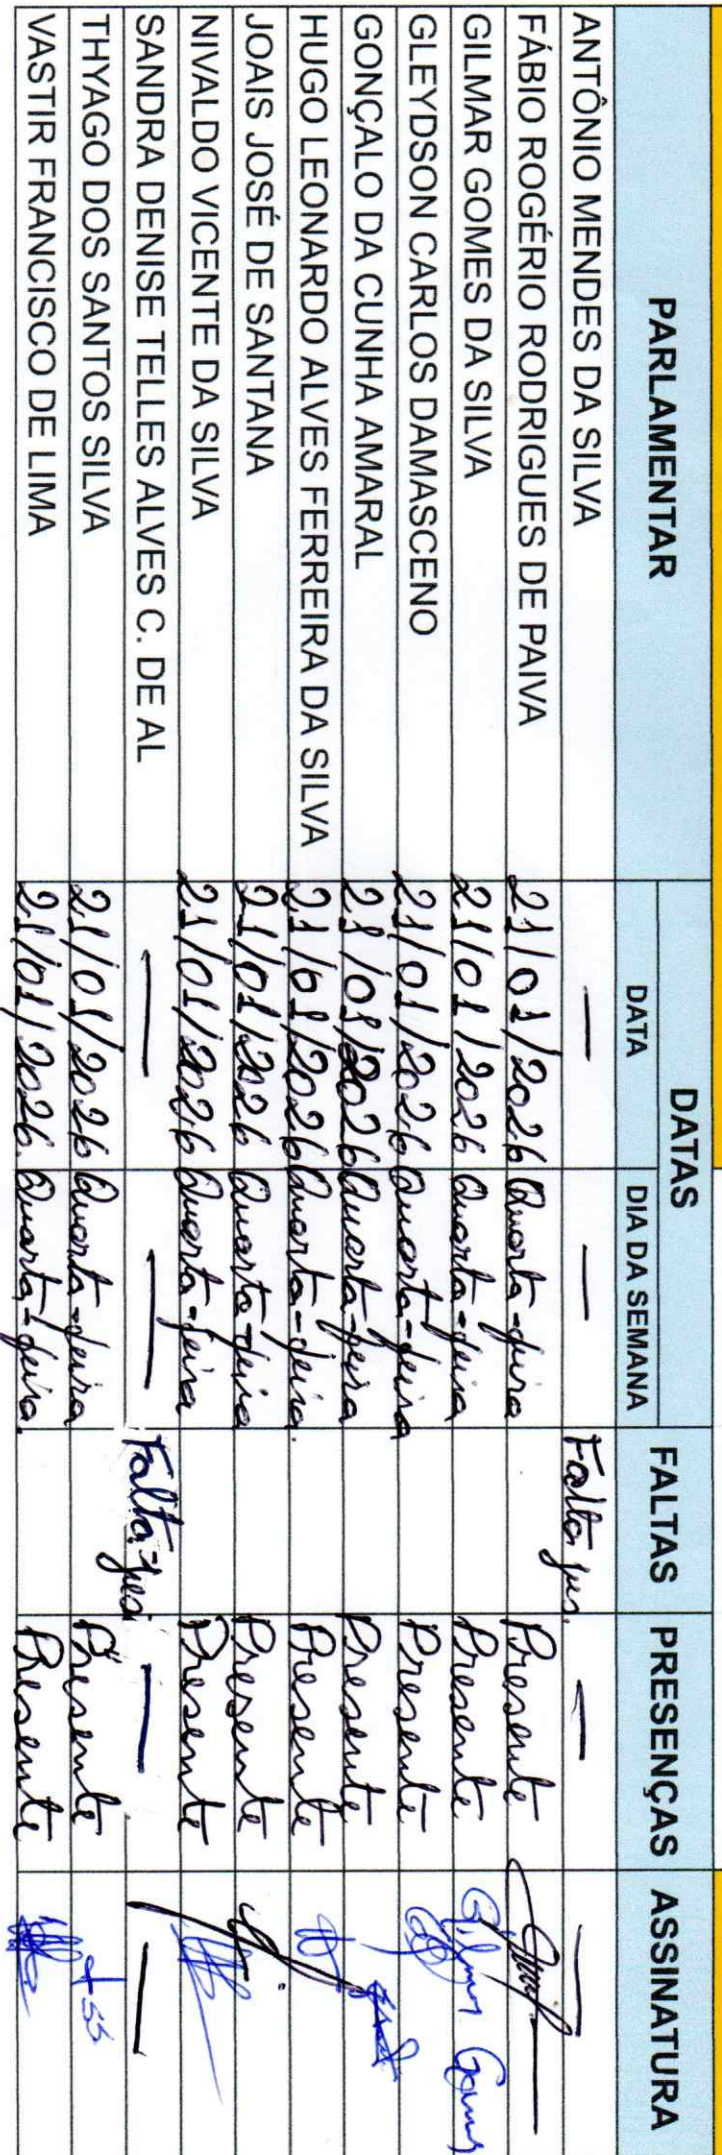 PARLAMENTAR DATAS FALTAS PRESENÇAS ASSINATURA
DATA DIA DA SEMANA
ANTÔNIO MENDES DA SILVA — — Falta jus. —
FÁBIO ROGÉRIO RODRIGUES DE PAIVA 21/01/2026 Quarta-feira Presente
GILMAR GOMES DA SILVA 21/01/2026 Quarta-feira Presente Gilmar Gomes
GLEYDSON CARLOS DAMASCENO 21/01/2026 Quarta-feira Presente
GONÇALO DA CUNHA AMARAL 21/01/2026 Quarta-feira Presente
HUGO LEONARDO ALVES FERREIRA DA SILVA 21/01/2026 Quarta-feira. Presente
JOAIS JOSÉ DE SANTANA 21/01/2026 Quarta-feira Presente
NIVALDO VICENTE DA SILVA 21/01/2026 Quarta-feira Presente
SANDRA DENISE TELLES ALVES C. DE AL — — Falta-jus. — —
THYAGO DOS SANTOS SILVA 21/01/2026 Quarta-feira Presente
VASTIR FRANCISCO DE LIMA 21/01/2026. Quarta-feira. Presente